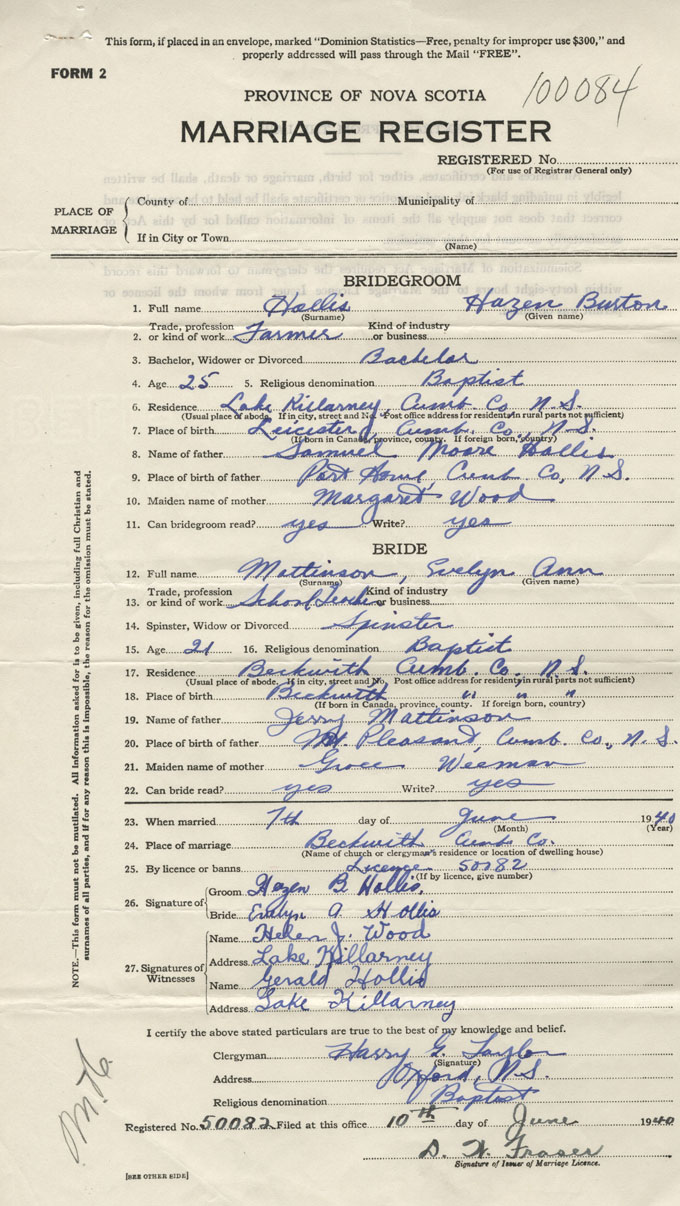 This form, if placed in an envelope, marked "Dominion Statistics—Free, penalty for improper use $300," and
properly addressed will pass through the Mail "FREE".
FORM 2
100084
PROVINCE OF NOVA SCOTIA
MARRIAGE REGISTER
REGISTERED No.
(For use of Registrar General only)
PLACE OF MARRIAGE
County of Municipality of
If in City or Town
(Name)
BRIDEGROOM
1. Full name Hollis Hazen Burton
(Surname) (Given name)
2. Trade, profession or kind of work Farmer Kind of industry or business
3. Bachelor, Widower or Divorced Bachelor
4. Age 25 5. Religious denomination Baptist
6. Residence Lake Killarney, Cumb. Co, N.S.
(Usual place of abode. If in city, street and No. Post office address for residents in rural parts not sufficient)
7. Place of birth Leicester, Cumb. Co, N.S.
(If born in Canada, province, county. If foreign born, country)
8. Name of father Samuel Moore Hollis
9. Place of birth of father Port Howe, Cumb Co, N.S.
10. Maiden name of mother Margaret Wood
11. Can bridegroom read? yes Write? yes
BRIDE
12. Full name Mattinson, Evelyn Ann
(Surname) (Given name)
13. Trade, profession or kind of work School Teacher Kind of industry or business
14. Spinster, Widow or Divorced Spinster
15. Age 21 16. Religious denomination Baptist
17. Residence Beckwith Cumb. Co, N.S.
(Usual place of abode. If in city, street and No. Post office address for residents in rural parts not sufficient)
18. Place of birth Beckwith " " "
(If born in Canada, province, county. If foreign born, country)
19. Name of father Jerry Mattinson
20. Place of birth of father Mt. Pleasant, Cumb. Co., N.S.
21. Maiden name of mother Grace Weeman
22. Can bride read? yes Write? yes
23. When married 7th day of June 1940
(Month) (Year)
24. Place of marriage Beckwith Cumb. Co.
(Name of church or clergyman's residence or location of dwelling house)
25. By licence or banns Licence 50082
(If by licence, give number)
26. Signature of
Groom Hazen B Hollis.
Bride Evelyn A Hollis
27. Signatures of Witnesses
Name Helen J. Wood
Address Lake Killarney
Name Gerald Hollis
Address Lake Killarney
NOTE.—This form must not be mutilated. All information asked for is to be given, including full Christian and
surnames of all parties, and if for any reason this is impossible, the reason for the omission must be stated.
I certify the above stated particulars are true to the best of my knowledge and belief.
Clergyman Harry G. Taylor
(Signature)
Address Oxford, N.S.
Religious denomination Baptist
Registered No. 50082 Filed at this office 10th day of June 1940
D. W. Fraser
Signature of Issuer of Marriage Licence.
[SEE OTHER SIDE]